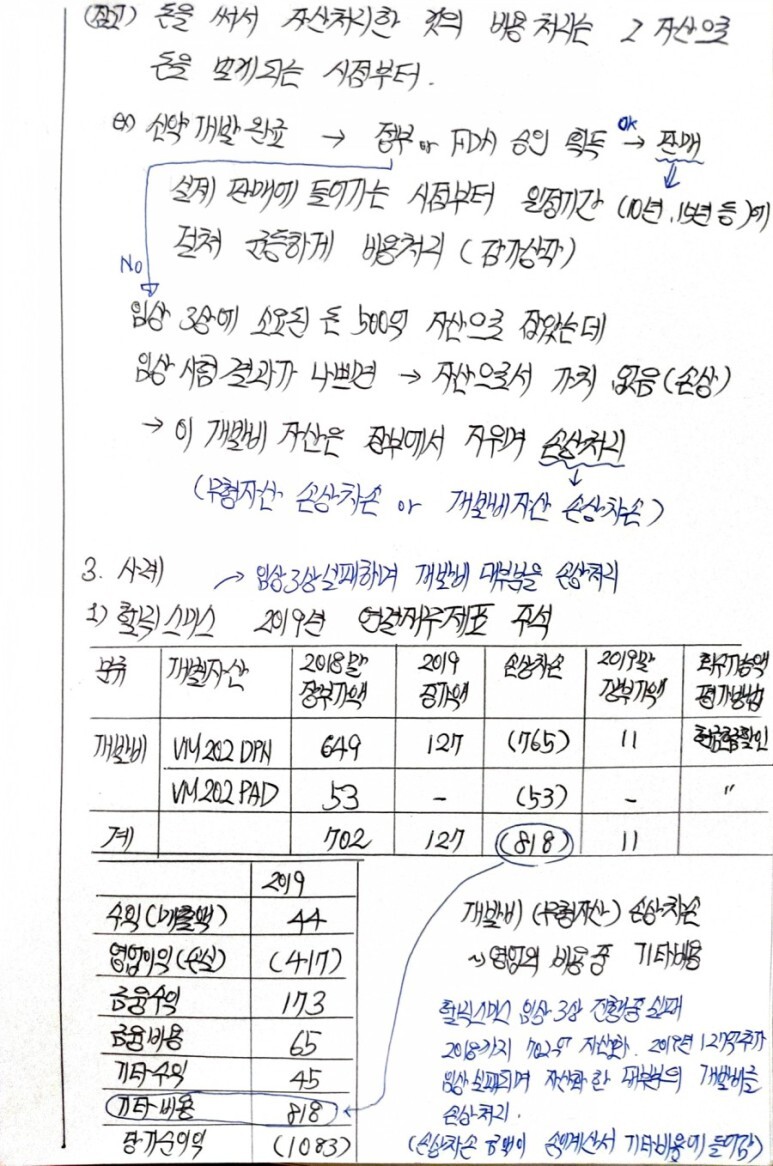 (참고) 돈을 써서 자산처리한 것의 비용 처리는 그 자산으로
돈을 벌게되는 시점부터.
ex) 신약 개발 완료 → 정부 or FDA 승인 획득 OK → 판매
실제 판매에 들어가는 시점부터 일정기간 (10년, 15년 등)에
걸쳐 균등하게 비용처리 (감가상각)
No
임상 3상에 소요된 돈 500억 자산으로 잡았는데
임상 시험 결과가 나쁘면 → 자산으로서 가치 없음 (손상)
→ 이 개발비 자산은 장부에서 지우며 손상처리
(무형자산 손상차손 or 개발비자산 손상차손)
3. 사례 → 임상3상 실패하며 개발비 대부분을 손상처리
1) 헬릭스미스 2019년 연결재무제표 주석
분류 개별자산 2018말 장부가액 2019 증가액 손상차손 2019말 장부가액 회수가능액 평가방법
개발비 VM202 DPN 649 127 (765) 11 현금흐름할인
VM202 PAD 53 - (53) - "
계 702 127 (818) 11
2019
수익(매출액) 44
영업이익(손실) (417)
금융수익 173
금융비용 65
기타수익 45
기타비용 818
당기순이익 (1083)
개발비 (무형자산) 손상차손
~ 영업외 비용 중 기타비용
헬릭스미스 임상 3상 진행중 실패
2018까지 702억 자산화. 2019년 127억 추가
임상 실패되며 자산화한 대부분의 개발비를
손상처리.
(손상차손 금액이 손익계산서 기타비용에 들어감)